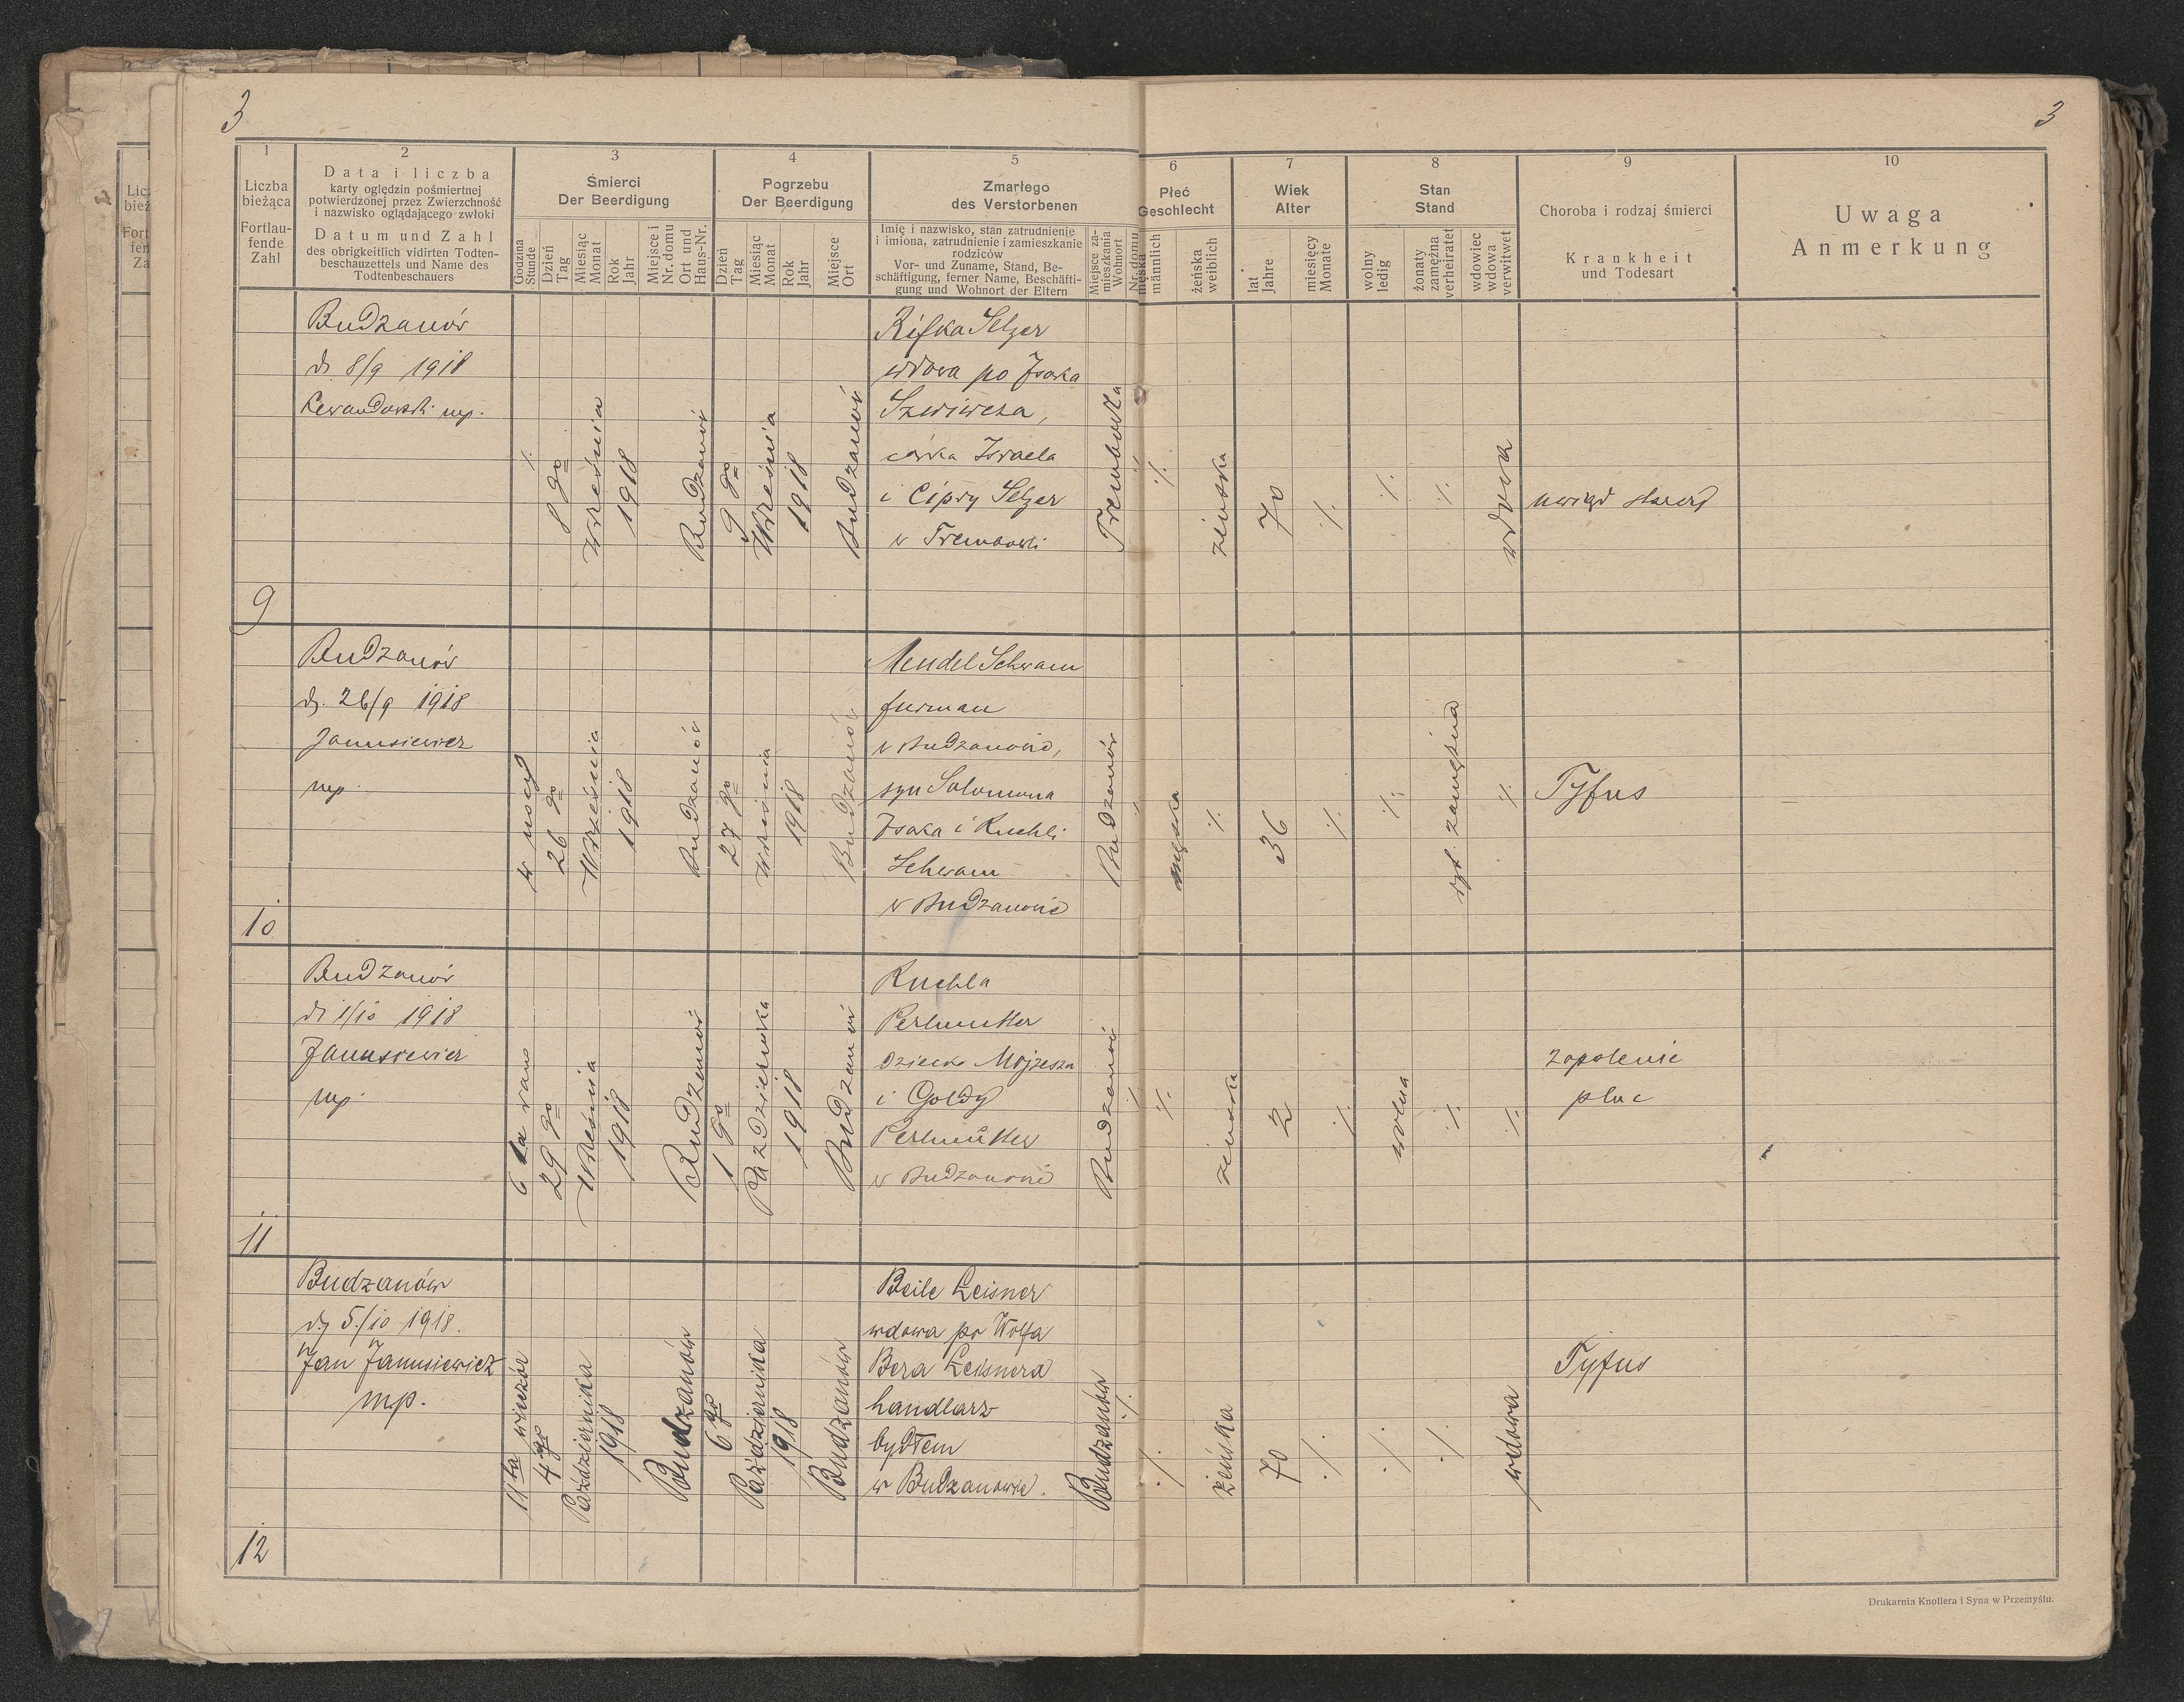 3
3
1
Liczba
bieżąca
Fortlau-
fende
Zahl
2
Data i liczba
karty oględzin pośmiertnej
potwierdzonej przez Zwierzchność
i nazwisko oglądającego zwłoki
Datum und Zahl
des obrigkeitlich vidirten Todten-
beschauzettels und Name des
Todtenbeschauers
3
Śmierci
Der Beerdigung
Godzina
Stunde
Dzień
Tag
Miesiąc
Monat
Rok
Jahr
Miejsce i
Nr. domu
Ort und
Haus-Nr.
4
Pogrzebu
Der Beerdigung
Dzień
Tag
Miesiąc
Monat
Rok
Jahr
Miejsce
Ort
5
Zmarłego
des Verstorbenen
Imię i nazwisko, stan zatrudnienie
i imiona, zatrudnienie i zamieszkanie
rodziców
Vor- und Zuname, Stand, Be-
schäftigung, ferner Name, Beschäfti-
gung und Wohnort der Eltern
Miejsce za-
mieszkania
Wohnort
Nr. domu
6
Płeć
Geschlecht
męska
männlich
żeńska
weiblich
7
Wiek
Alter
lat
Jahre
miesięcy
Monate
8
Stan
Stand
wolny
ledig
żonaty
zamężna
verheiratet
wdowiec
wdowa
verwitwet
9
Choroba i rodzaj śmierci
Krankheit
und Todesart
10
Uwaga
Anmerkung
9
Budzanów
d. 8/9 1918
Lewandowski mp.
./.
8 go
Września
1918
Budzanów
9 go
Września
1918
Budzanów
Rifka Selzer
wdowa po Isaka
córka Israela
i Cipry Selzer
w Trembowli
Trembowla
./.
./.
żeńska
70
./.
./.
./.
wdowa
uwiąd starczy
10
Budzanów
d. 26/9 1918
Janusiewicz
mp.
w nocy
26 go
Września
1918
Budzanów
27 go
Września
1918
Budzanów
Mendel Schwam
furman
w Budzanowie,
syn Salomona
Isaka i Ruchli
Schwam
w Budzanowie
Budzanów
./.
męska
./.
36
./.
./.
ryt. zamężna
./.
Tyfus
11
Budzanów
d. 1/10 1918
Janusiewicz
mp.
6 ta rano
29 go
Września
1918
Budzanów
1 go
Października
1918
Budzanów
Ruchla
Perlmutter
dziecko Mojżesza
i Goldy
Perlmutter
w Budzanowie
Budzanów
./.
./.
żeńska
2
./.
wolna
./.
./.
zapalenie
płuc
12
Budzanów
d. 5/10 1918.
Jan Janusiewicz
mp.
11 ta wieczór
4 go
Października
1918
Budzanów
6 go
Października
1918
Budzanów
Beile Leisner
wdowa po Wolfa
Bera Leisnera
handlarz
bydłem
w Budzanowie.
Budzanów
./.
./.
żeńska
70
./.
./.
./.
wdowa
Tyfus
Drukarnia Knollera i Syna w Przemyślu.